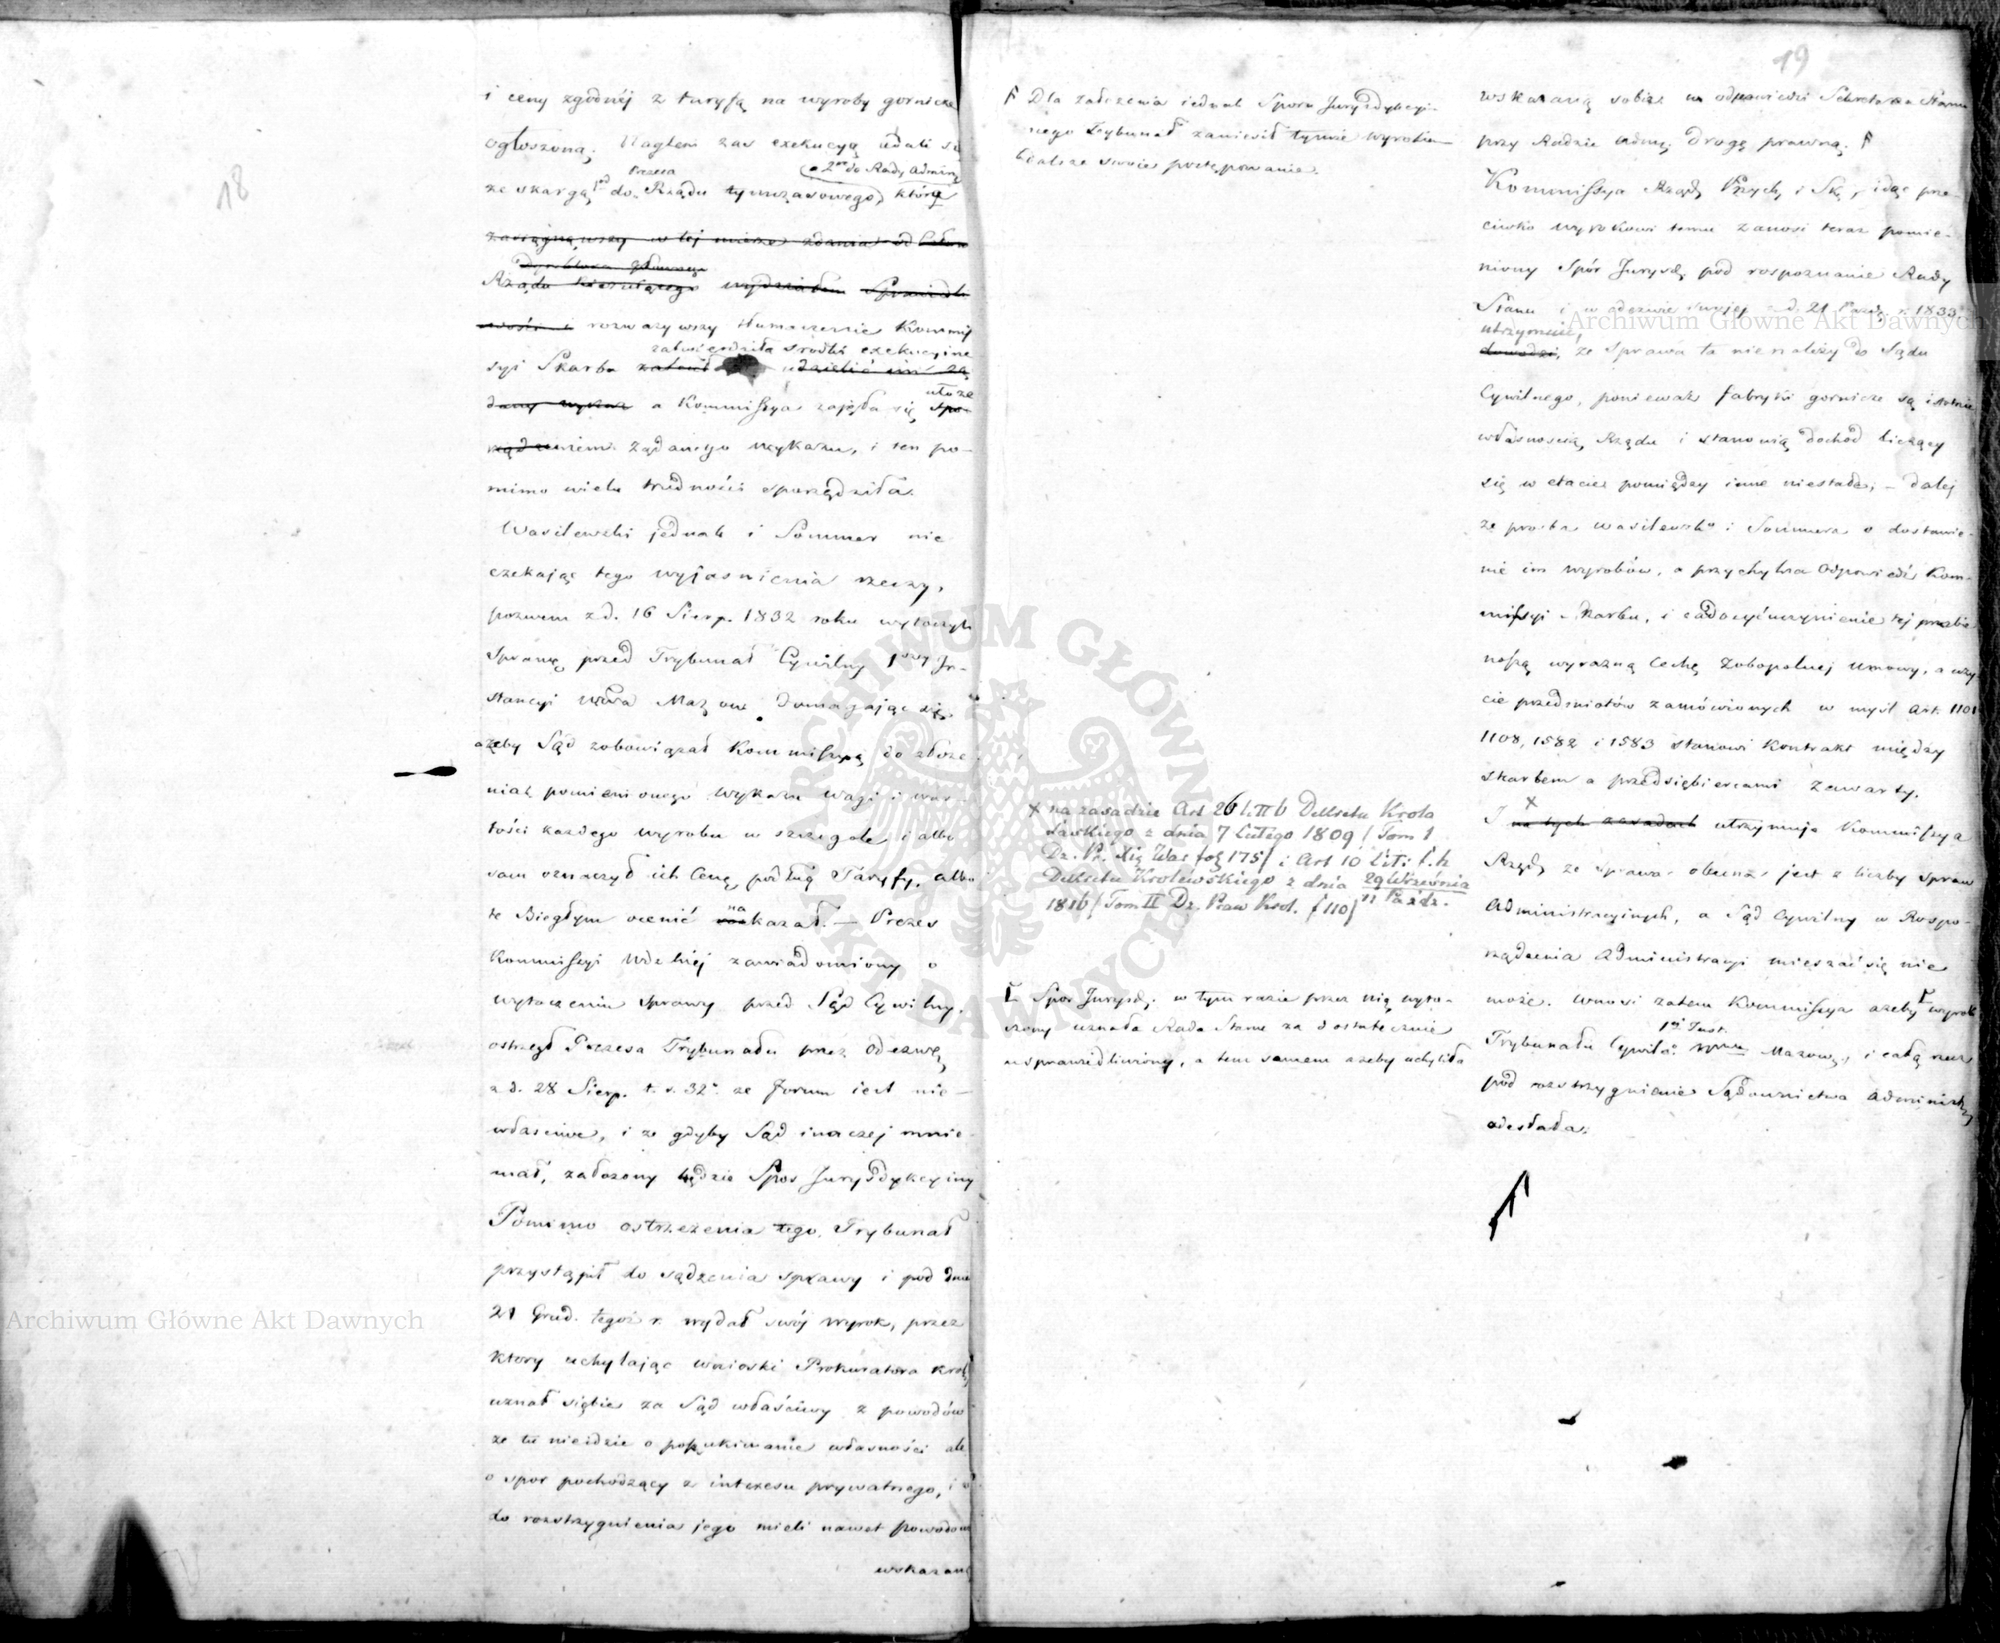 18
i ceny zgodnéj z taryfą na wyroby gornicze
ogłoszoną. Nagleni zaś exekucyą udali się
Prezesa
a 2re do Rady Admin:
ze skargą 1od do Rządu tymczasowego, które
zasiągnąwszy w tej mierze zdania od Członka
Dyrektora Głównego
Rządu kierującego wydziałem Sprawiedli
wości i rozważywszy tłumaczenie Kommis
zatwierdziła srodki exekucyine
syi Skarbu udzielić im żą
dany wykaz a Kommissya zajęła się
ułoże
rządzeniem żądanego wykazu, i ten po-
mimo wielu trudności sporządziła.
Wasilewski jednak i Sommer nie
czekając tego wyjasnienia rzeczy,
pozwem z d. 16 Sierp. 1832 roku wytoczyli
Sprawę przed Trybunał Cywilny 1szey In-
stancyi Wdztwa Mazow. domagając się
ażeby Sąd zobowiązał Kommissyą do złoże
nia pomienionego wykazu wagi i war-
tości każdego wyrobu w szczegole, i albo
sam oznaczył ich Cenę podług Taryfy, albo
te Biegłym ocenić nakazał. — Prezes
Kommissyi Wdzkiej zawiadomiony o
wytoczeniu sprawy przed Sąd Cywilny,
ostrzegł Prezesa Trybunału przez Odezwę
z d. 28 Sierp. t. r. 32o że Forum iest nie-
właściwe, i że gdyby Sąd inaczej mnie-
mał, założony będzie Spor Jurysdykcyiny
Pomimo ostrzeżenia tego Trybunał
przystąpił do sądzenia sprawy i pod dniem
21 Grud. tegoż r. wydał swój wyrok, przez
ktory uchylając wnioski Prokuratora Krol.
uznał siebie za Sąd właściwy z powodów
że tu nieidzie o poszukiwanie własności ale
o spor pochodzący z interesu prywatnego, i
do rozstrzygnienia jego mieli nawet powodowie
wskazaną
19
F Dla założenia iednak Sporu Jurysdykcyi-
nego Trybunał zawiesił tymże wyrokiem
dalsze swoie postępowanie.
X na zasadzie Art 26 l. π b Dekretu Krola
Saskiego z dnia 7 Lutego 1809 / Tom 1
Dz. Pr. Xię War fol 175/ i Art 10 Lit: f. h
Dekretu Krolewskiego z dnia 29 Września
11 Paźdz.
1816 / Tom II Dz. Praw Krol. f 110/
Γ Spor Jurysd: w tym razie przez nią wyto-
czony uznała Rada Stanu za dostatecznie
usprawiedliwiony, a tem samem ażeby uchyliła
wskazaną sobie w odpowiedzi Sekretarza Stanu
przy Radzie Admi: drogę prawną. F
Kommissya Rząd: Przych: i Sk:, idąc prze-
ciwko wyrokowi temu zanosi teraz pomie-
niony Spór Jurysd: pod rozpoznanie Rady
Stanu i w odezwie swojej z d. 21 Paźdz. r. 1833o
utrzymuie,
dowodzi, że Sprawa ta nie należy do Sądu
Cywilnego, ponieważ fabryki gornicze są istotnie
własnością Rządu i stanowią dochod liczący
się w etacie pomiędzy inne niestałe; – dalej
że prośba Wasilewskgo i Sommera o dostawie-
nie im wyrobów, a przychylna Odpowiedź Kom-
missyi Skarbu, i zadosyćuczynienie tej prośbie
noszą wyraźną Cechę Zobopolnej umowy, a uży
cie przedmiotów zamówionych w myśl Art. 1101
1108, 1582 i 1583 stanowi Kontrakt między
skarbem a przedsiębiercami zawarty.
X
I na tych zasadach utrzymuje Kommissya
Rządo że sprawa obecna jest z liczby spraw
Administracyinych, a Sąd Cywilny w Rospo-
rządzenia Administracyi mieszać się nie
może. Wnosi zatem Kommissya ażeby Γ wyrok
1ej Inst.
Trybunału Cywilo Mazow., i całą rzecz
pod rozstrzygnienie Sądownictwa Administr:
odesłała.
Archiwum Główne Akt Dawnych
Archiwum Główne Akt Dawnych
ARCHIWUM GŁÓWNE AKT DAWNYCH